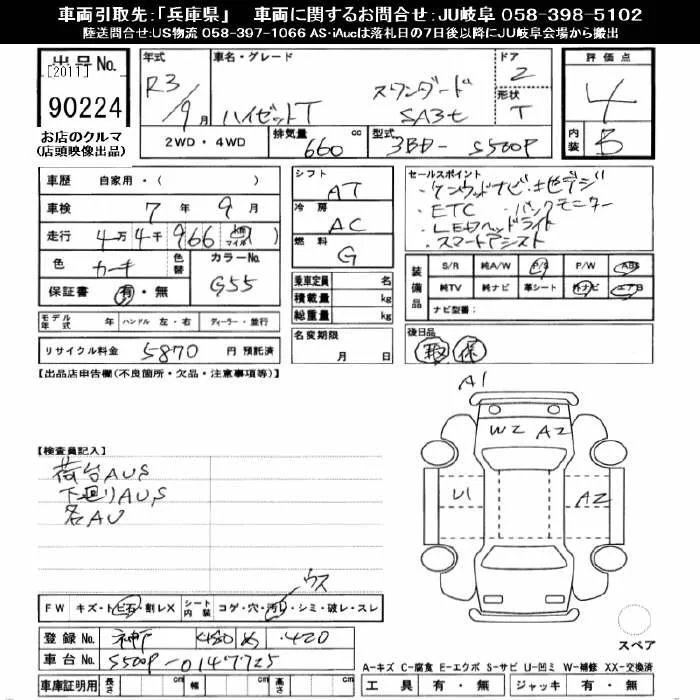 車両引取先:「兵庫県」 車両に関するお問合せ:JU岐阜 058-398-5102
陸送問合せ:US物流 058-397-1066 AS・iAucは落札日の7日後以降にJU岐阜会場から搬出
出品No. [2011]
90224
お店のクルマ
(店頭映像出品)
年式 R3/9月
車名・グレード ハイゼットT スタンダード SA3t
ドア 2
形状 T
評価点 4
内装 B
2WD・4WD 排気量 660 cc 型式 3BD-S500P
車歴 自家用・( )
車検 7年9月
走行 4万4千966 (km マイル)
色 カーキ 色替 カラーNo. G55
保証書 有・無
シフト AT
冷房 AC
燃料 G
乗車定員 名
積載量 kg
総重量 kg
セールスポイント
・ケンウッドナビ・地デジ
・ETC ・バックモニター
・LEDヘッドライト
・スマートアシスト
装備品 S/R 純A/W P/S P/W ABS
純TV 純ナビ 革シート 外ナビ エアB
ナビ型番:
モデル年式 年 ハンドル 左・右 ディーラー・並行
リサイクル料金 5870 円 預託済
名変期限 月 日
後日品
取 保
【出品店申告欄(不良箇所・欠品・注意事項等)】
【検査員記入】
荷台AUS
下廻りAUS
各AU
A1
W2 A2
U1 A2
ウス
FW キズ・トビ石・割レX シート内装 コゲ・穴・汚レ・シミ・破レ・スレ
登録No. 神戸 480 め ・420
車台No. S500P-0147725
車庫証明用 長さ cm 幅 cm 高さ cm
スペア
A-キズ C-腐食 E-エクボ S-サビ U-凹ミ W-補修 XX-交換済
工具 有・無 ジャッキ 有・無